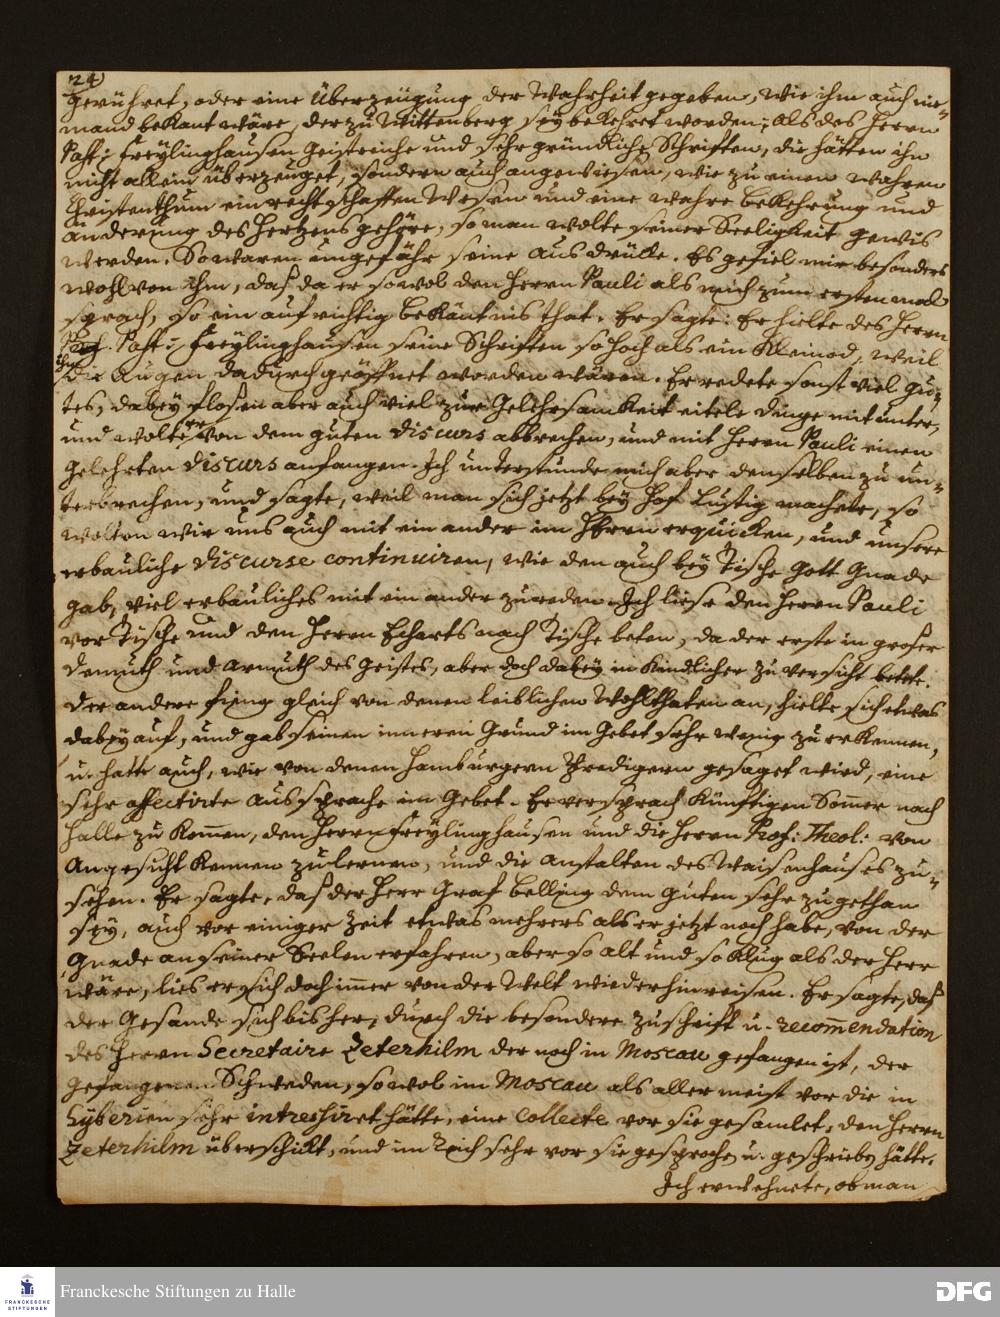 24)
gerühret, oder eine Überzeugung der Wahrheit gegeben, wie ihm auch nie-
mand bekant wäre, der zu Wittenberg seÿ bekehret worden; als des Herrn
Past: Freÿlinghausen Geistreiche und sehr gründliche Schriften, die hätten ihn
nicht allein überzeuget, sondern auch angewiesen, wie zu einen wahren
Christenthum ein rechtschaffen Wesen und eine wahre bekehrung und
änderung des Hertzens gehöre, so man wolte seiner Seeligkeit gewis
werden. So waren ungefähr seine ausdrücke. Es gefiel mir besonders
wohl von ihm, daß da er sowol den Herrn Pauli als mich zum ersten mal
sprach, so ein aufrichtig bekäntnis that. Er sagte: Er hielte des Herrn
Past: Freÿlinghausen seine Schriften so hoch als ein Kleinod, weil
ihm die Augen dadurch geöffnet worden wären. Er redete sonst viel gu-
tes, dabeÿ flosen aber auch viel zur Gelehrsamkeit eitele dinge mit unter,
und wolte er von dem guten discurs abbrechen, und mit Herrn Pauli einen
gelehrten discurs anfangen. Ich unterstunde mich aber denselben zu un-
terbrechen, und sagte, weil man sich jetzt beÿ Hof lustig machete, so
wolten wir uns auch mit ein ander im Herrn erquicken, und unsere
erbauliche discurse continuiren, wie den auch beÿ Tische Gott Gnade
gab, viel erbauliches mit ein ander zu reden. Ich liese den Herrn Pauli
vor Tische und den Herrn Echarts nach Tische beten, da der erste in groser
demuth und armuth des Geistes, aber doch dabeÿ in kindlicher zuversicht betete.
der andere fieng gleich von denen leiblichen Wohlthaten an, hielte sich etwas
dabeÿ auf, und gab seinen inneren Grund im Gebet sehr wenig zu erkennen,
u. hatte auch, wie von denen Hamburgern Predigern gesaget wird, eine
sehr affectirte aussprache im Gebet. Er versprach künftigen Som̄er nach
Halle zu kom̄en, den Herrn Freÿlinghausen und die Herrn Prof: Theol: von
Angesicht kennen zu lernen, und die anstalten des Waisenhauses zu-
sehen. Er sagte, daß der Herr Graf belling dem guten sehr zugethan
seÿ, auch vor einiger Zeit etwas mehrers als er jetzt noch habe, von der
Gnade an seiner Seelen erfahren, aber so alt und so klug als der Herr
wäre, lies er sich doch im̄er von der Welt wieder hinreisen. Er sagte, daß
der Gesande sich bisher, durch die besondere zuschrift u. recom̄endation
des Herrn Secretaire Zeterhilm der noch in Moscau gefangen ist, der
gefangenen Schweden, sowol in Moscau als aller meist vor die in
Sÿberien sehr intreshiret hätte, eine Collecte vor sie gesamlet, den Herrn
Zeterhilm überschickt, und im Reich sehr vor sie gesprochen u. geschrieben hätte.
Ich erwehnete, ob man
Franckesche Stiftungen zu Halle
FRANCKESCHE
STIFTUNGEN
DFG